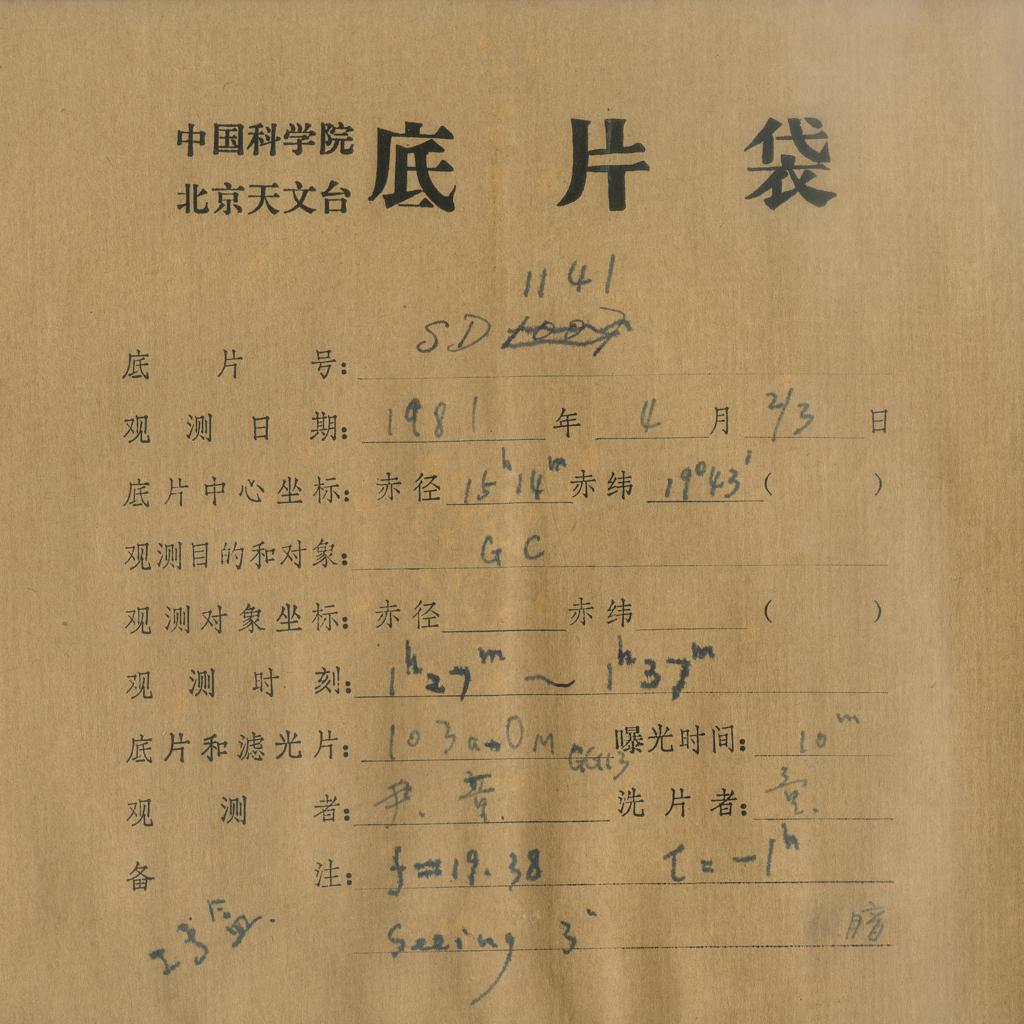 中国科学院
北京天文台
底片袋
1141
底片号: SD 1007
观测日期: 1981 年 4 月 2/3 日
底片中心坐标: 赤径 15h14m 赤纬 19°43' ( )
观测目的和对象: GC
观测对象坐标: 赤径 赤纬 ( )
观测时刻: 1h27m ~ 1h37m
底片和滤光片: 103a-O M 曝光时间: 10m
观测者: 尹. 洗片者:
备注: f=19.38 t=-1h
Seeing 3" 暗